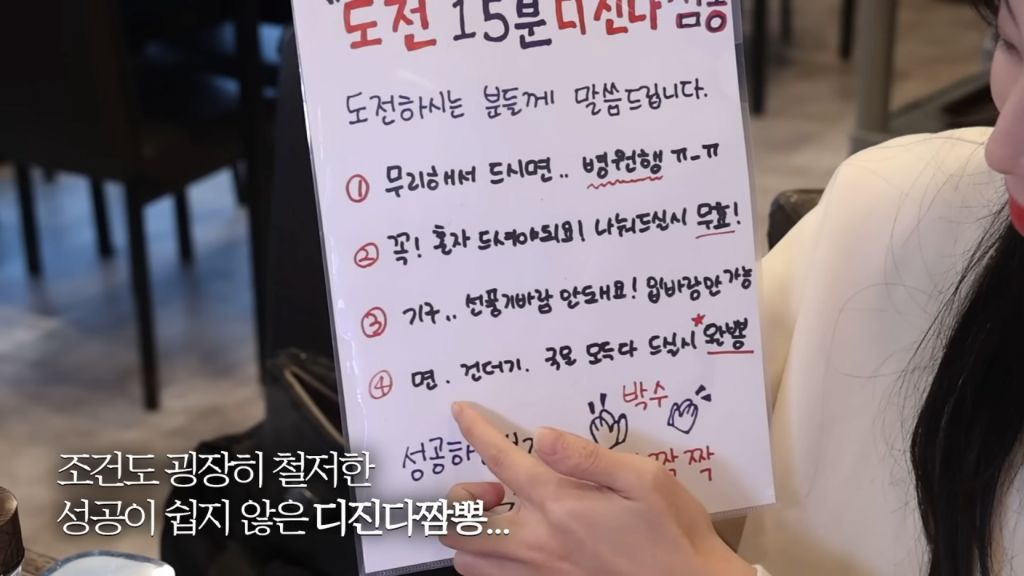 "도전 15분 디진다 짬뽕
도전하시는 분들께 말씀드립니다.
① 무리해서 드시면.. 병원행 ㅠ-ㅠ
② 꼭! 혼자 드셔야되요! 나눠드실시 무효!
③ 기구.. 선풍기바람 안돼요! 입바람만 가능
④ 면. 건더기. 국물 모두다 드실시 ★완뽕
박수
성공하
짝 짝
조건도 굉장히 철저한
성공이 쉽지 않은 디진다짬뽕...